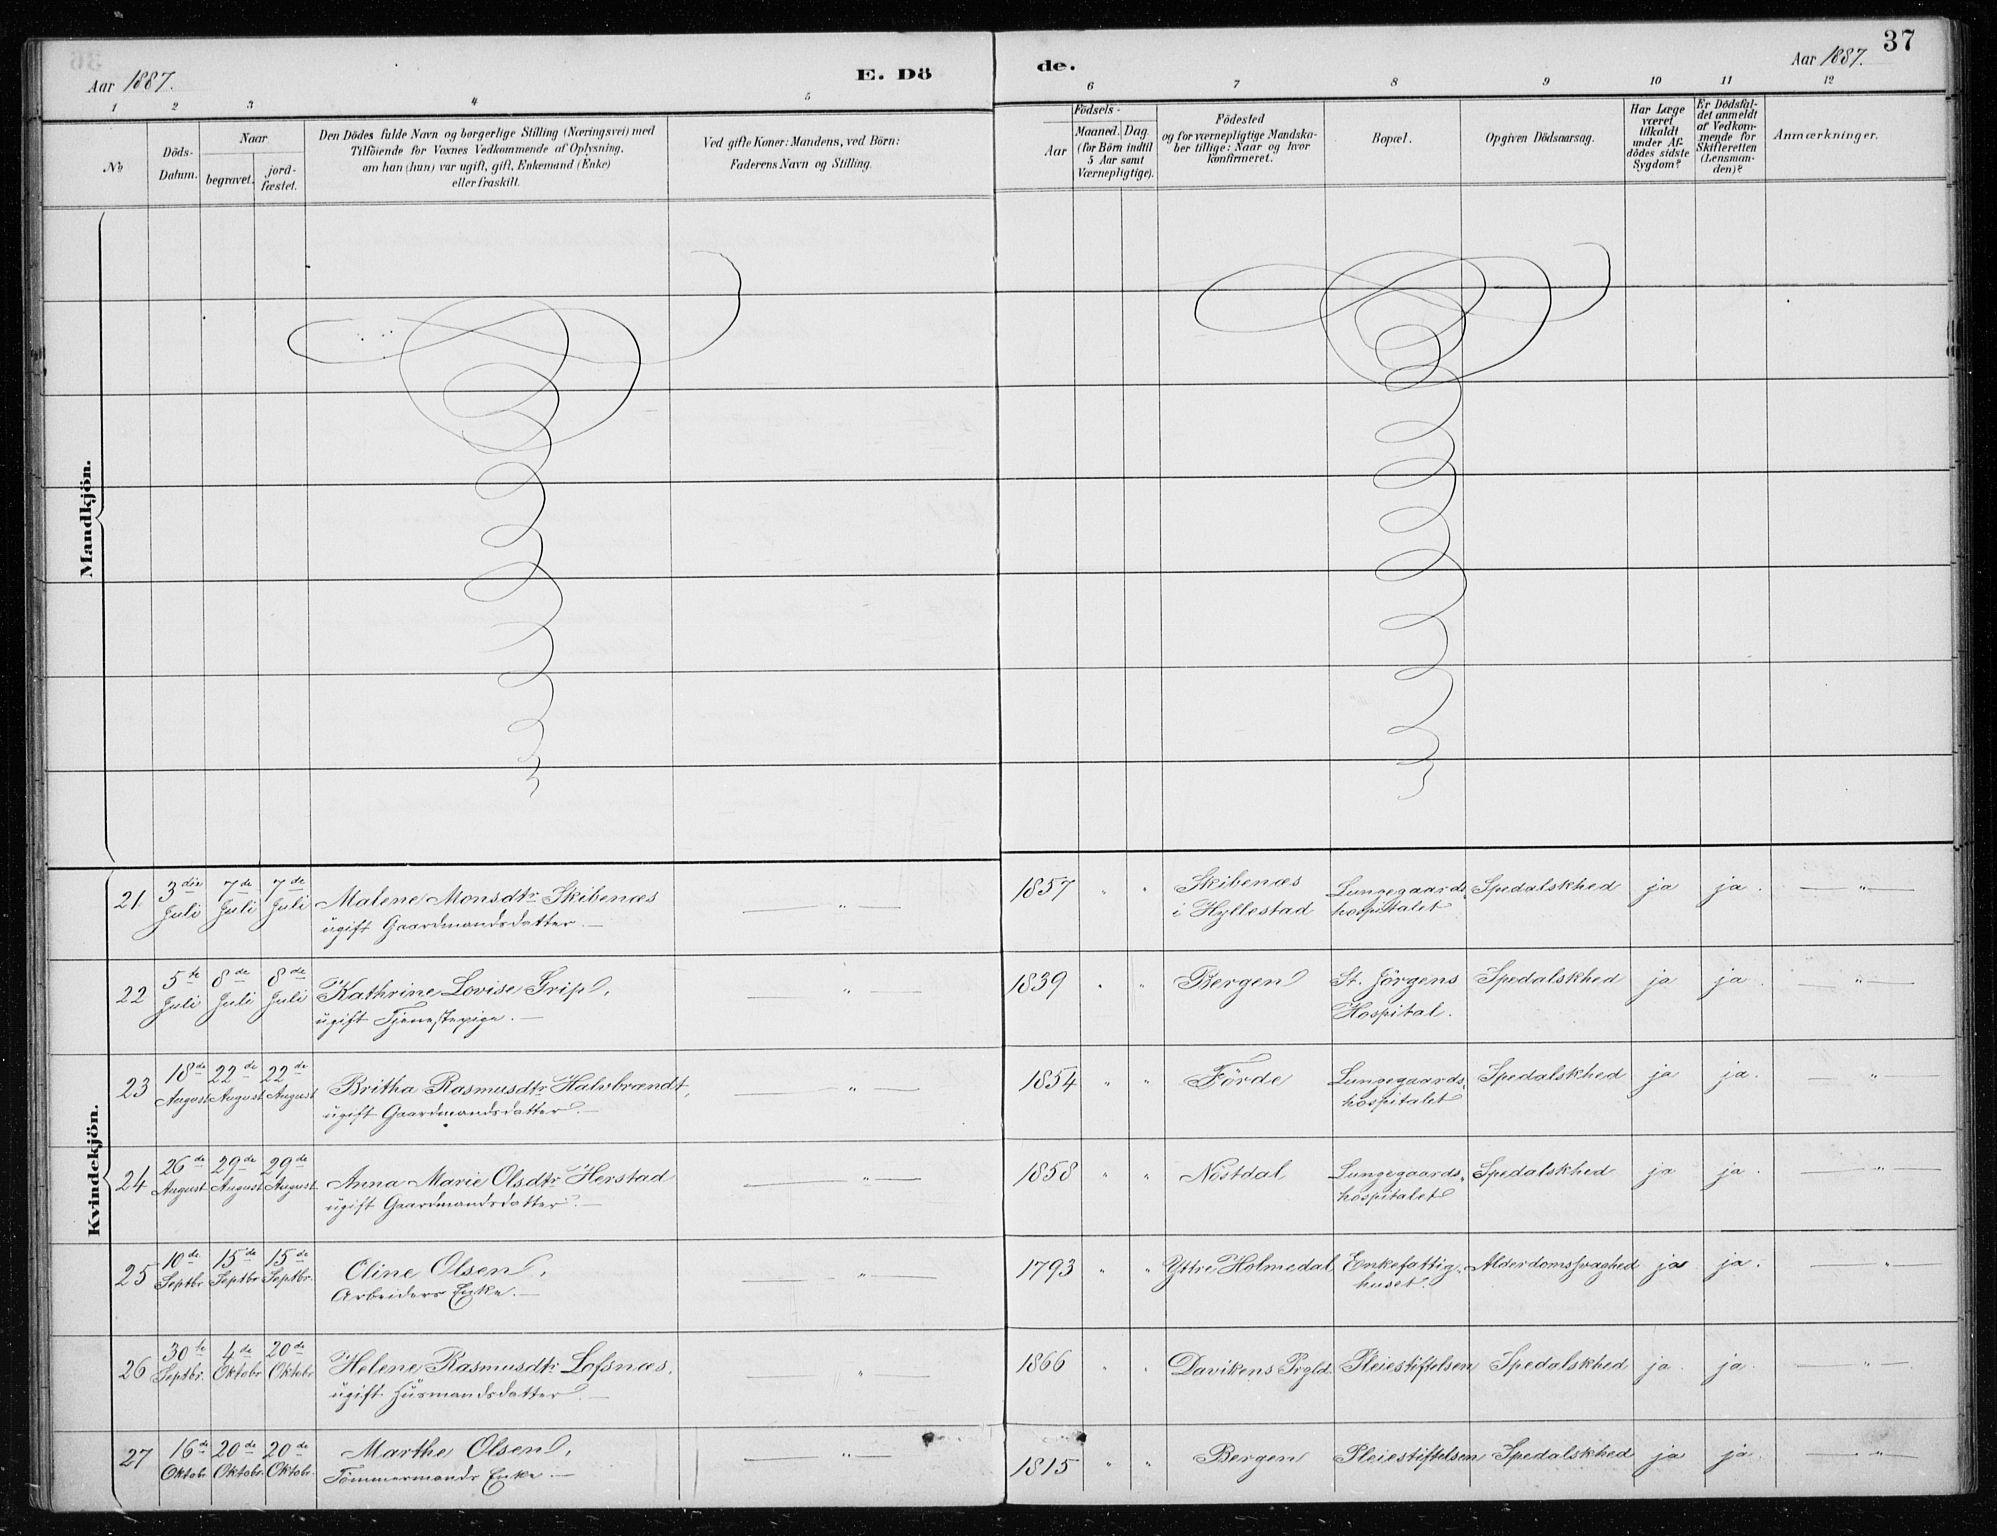 37
Aar 1887.
E. Dö
de.
Aar 1887.
1 2 3 4 5 6 7 8 9 10 11 12
No
Döds-Datum.
Naar
begravet.
jord-fæstet.
Den Dödes fulde Navn og borgerlige Stilling (Næringsvei) med
Tilföiende for Voxnes Vedkommende af Oplysning,
om han (hun) var ugift, gift, Enkemand (Enke)
eller fraskilt.
Ved gifte Koner: Mandens, ved Börn:
Faderens Navn og Stilling.
Födsels-
Aar
Maaned. Dag.
(for Börn indtil
5 Aar samt
Værnepligtige).
Födested
og for værnepligtige Mandska-
ber tillige: Naar og hvor
konfirmeret.
Bopæl.
Opgiven Dödsaarsag.
Har Læge
været
tilkaldt
under Af-
dödes sidste
Sygdom?
Er Dödsfal-
det anmeldt
af Vedkom-
mende for
Skifteretten
(Lensman-
den)?
Anmærkninger.
Mandkjön.
Kvindekjön.
21 3die Juli 7de Juli 7de Juli Malene Monsdtr Skibenæs
ugift Gaardmandsdatter. — — " — 1857 " " Skibenæs
i Hyllestad Lungegaards-
hospitalet Spedalskhed ja ja. — " —
22 5te Juli 8de Juli 8de Juli Kathrine Lovise Grip,
ugift Tjenestepige. — — " — 1839 " " Bergen St. Jörgens
Hospital. Spedalskhed ja ja. — " —
23 18de August 22de August 22de August Britha Rasmusdtr Halvbrændt,
ugift Gaardmandsdatter. — — " — 1854 " " Förde Lungegaards-
hospitalet Spedalskhed ja ja. " —
24 26de August 29de August 29de August Anna Marie Olsdtr Herstad
ugift Gaardmandsdatter. — — " — 1858 " " Nöstdal Lungegaards-
hospitalet Spedalskhed ja ja. — " —
25 10de Septbr. 15de Septbr. 15de Septbr. Oline Olsen,
Arbeiders Enke. — — " — 1793 " " Yttre Holmedal Enkefattig-
huset. Alderdomssvaghed ja ja. — " —
26 30te Septbr. 4de Oktobr 20de Oktobr Helene Rasmusdtr Lofsnæs,
ugift Husmandsdatter — — " — 1866 " " Davikens Prgld. Pleiestiftelsen Spedalskhed ja. ja. — " —
27 16de Oktobr. 20de Oktobr. 20de Oktobr. Marthe Olsen,
Tömmermands Enke — — " — 1815 " " Bergen Pleiestiftelsen Spedalskhed ja ja. — " —